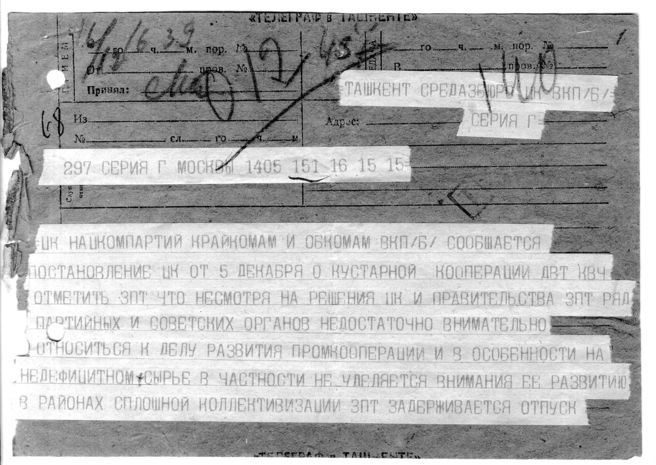 «ТЕЛЕГРАФ в ТАШКЕНТЕ»
го ч. м. пор. №
го ч. м. пор. №
От пров. №
В пров. №
Принял:
ТАШКЕНТ СРЕДАЗБЮРО ЦК ВКП/Б/=
Из
Адрес:
СЕРИЯ Г=
68
№ сл. го ч. м
297 СЕРИЯ Г МОСКВЫ 1405 151 16 15 15=
=ЦК НАЦКОМПАРТИЙ КРАЙКОМАМ И ОБКОМАМ ВКП/Б/ СООБЩАЕТСЯ
ПОСТАНОВЛЕНИЕ ЦК ОТ 5 ДЕКАБРЯ О КУСТАРНОЙ КООПЕРАЦИИ ДВТ КВЧ
ОТМЕТИТЬ ЗПТ ЧТО НЕСМОТРЯ НА РЕШЕНИЯ ЦК И ПРАВИТЕЛЬСТВА ЗПТ РЯД
ПАРТИЙНЫХ И СОВЕТСКИХ ОРГАНОВ НЕДОСТАТОЧНО ВНИМАТЕЛЬНО
ОТНОСИТЬСЯ К ДЕЛУ РАЗВИТИЯ ПРОМКООПЕРАЦИИ И В ОСОБЕННОСТИ НА
НЕДЕФИЦИТНОМ СЫРЬЕ В ЧАСТНОСТИ НЕ УДЕЛЯЕТСЯ ВНИМАНИЯ ЕЕ РАЗВИТИЮ
В РАЙОНАХ СПЛОШНОЙ КОЛЛЕКТИВИЗАЦИИ ЗПТ ЗАДЕРЖИВАЕТСЯ ОТПУСК
«ТЕЛЕГРАФ в ТАШКЕНТЕ»